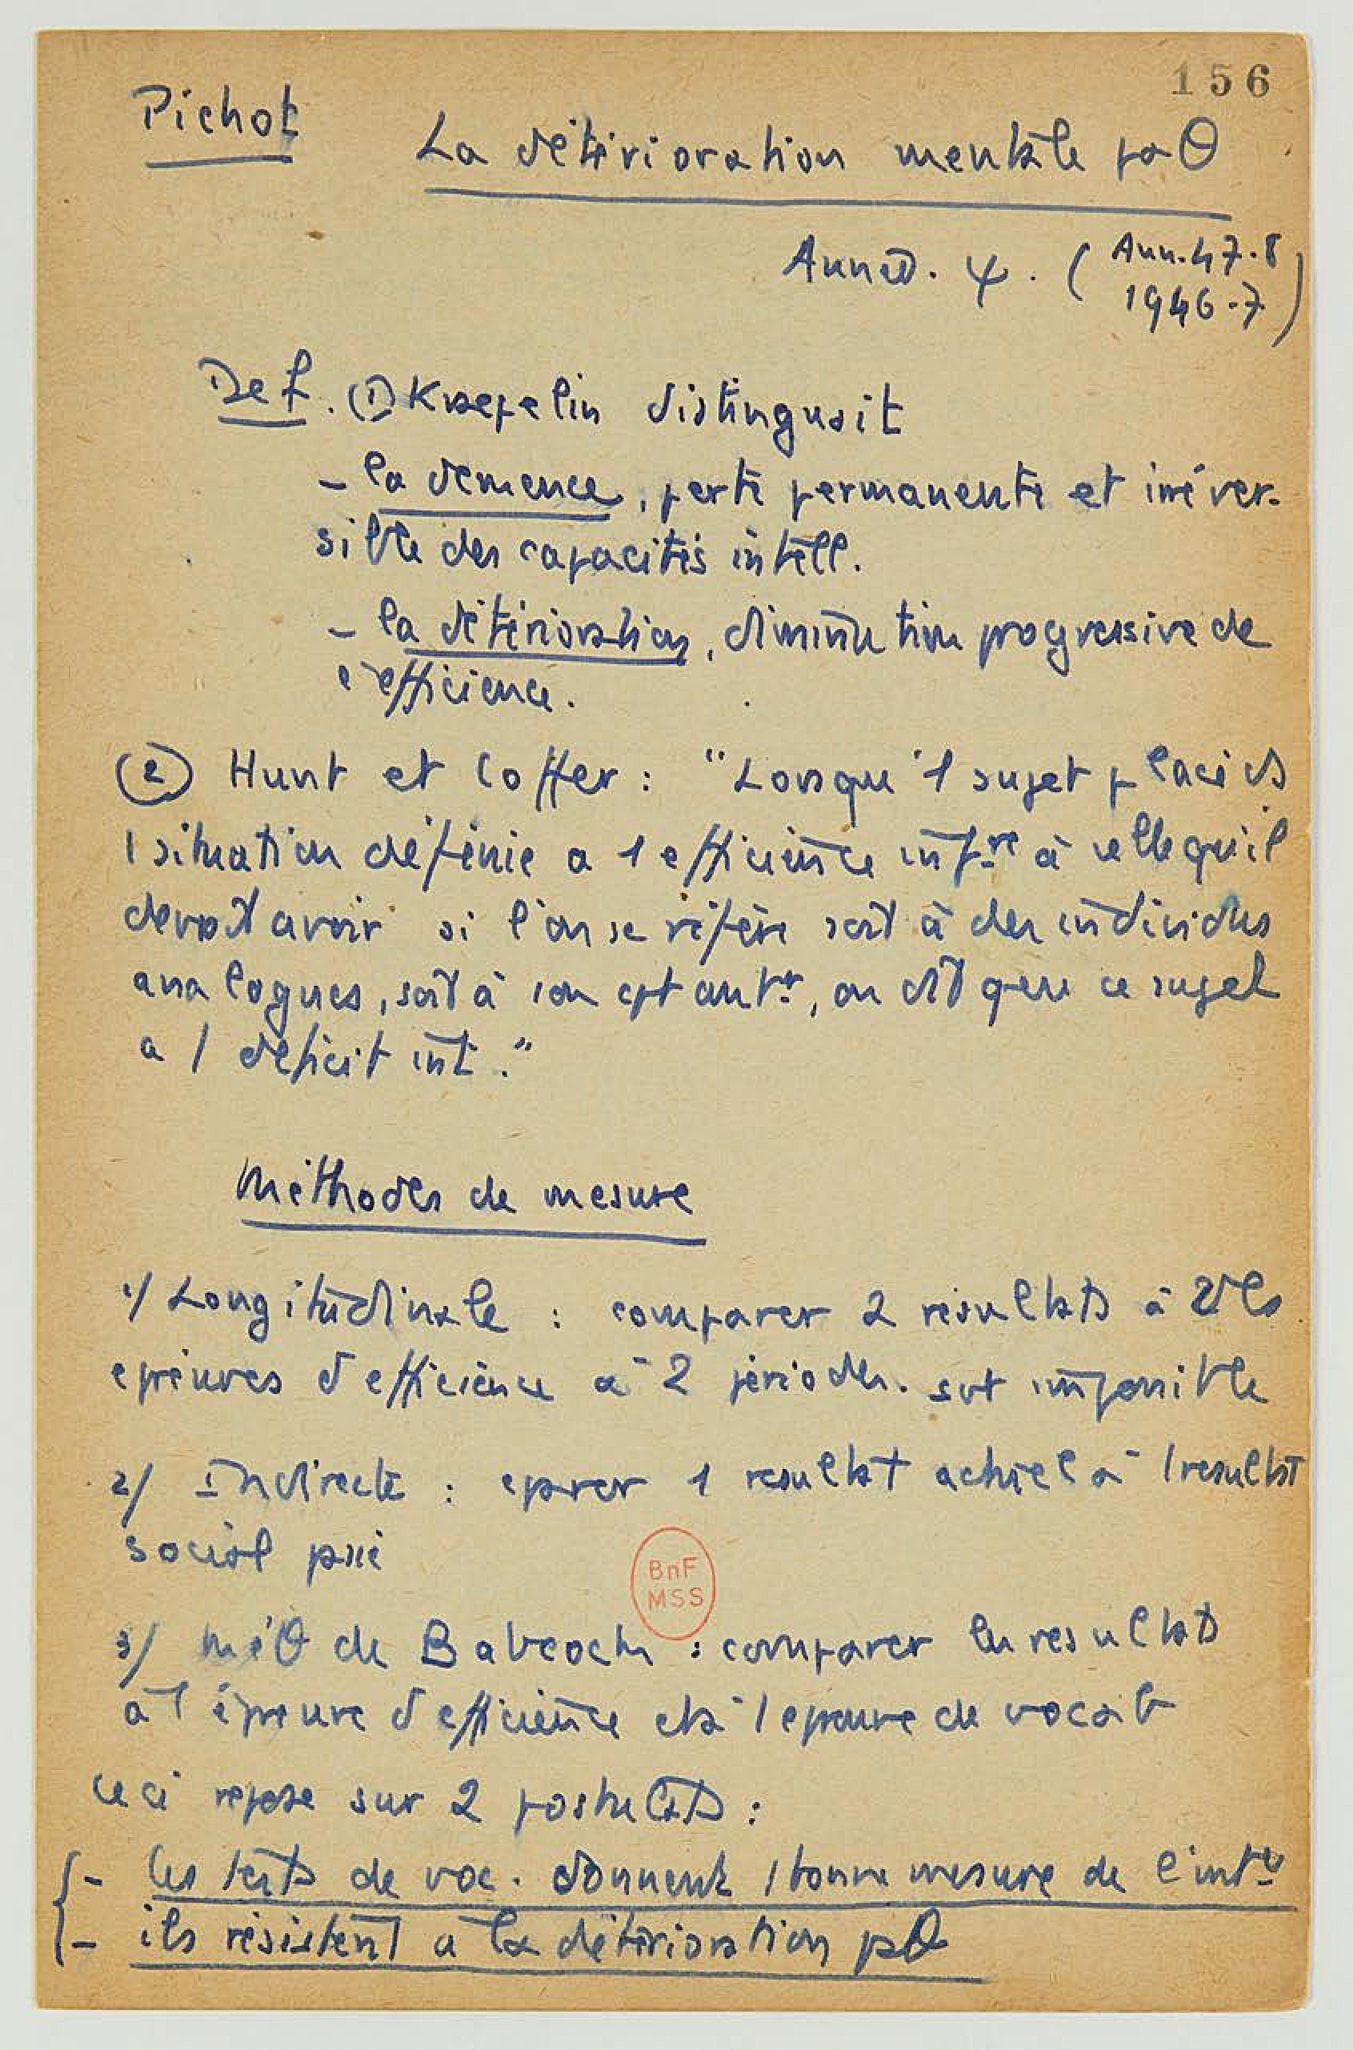 156
Pichot
La détérioration mentale paθ
Année. ψ. ( Ann. 47-8
1946-7 )
Def. (1) Kraepelin distinguait
- la démence, perte permanente et irréver-
sible des capacités intell.
- la détérioration, diminution progressive de
l'efficience.
(2) Hunt et Coffer : "Lorsque 1 sujet placé ds
1 situation définie a 1 efficience infre à celle qu'il
devrait avoir si l'on se réfère soit à des individus
analogues, soit à son cpt antr, on dit que ce sujet
a 1 déficit int."
Méthodes de mesure
1/ Longitudinale : comparer 2 résultats à
épreuves d'efficience à 2 périodes. svt impossible
2/ Indirecte : cparer 1 résultat actuel à 1 résultat
social
3/ méθ de Babcock : comparer les résultats
à l'épreuve d'efficience et à l'épreuve de vocab
ceci repose sur 2 postulats :
- les tests de voc. donnent 1 bonne mesure de l'int
- ils résistent à la détérioration pθ
BnF
MSS